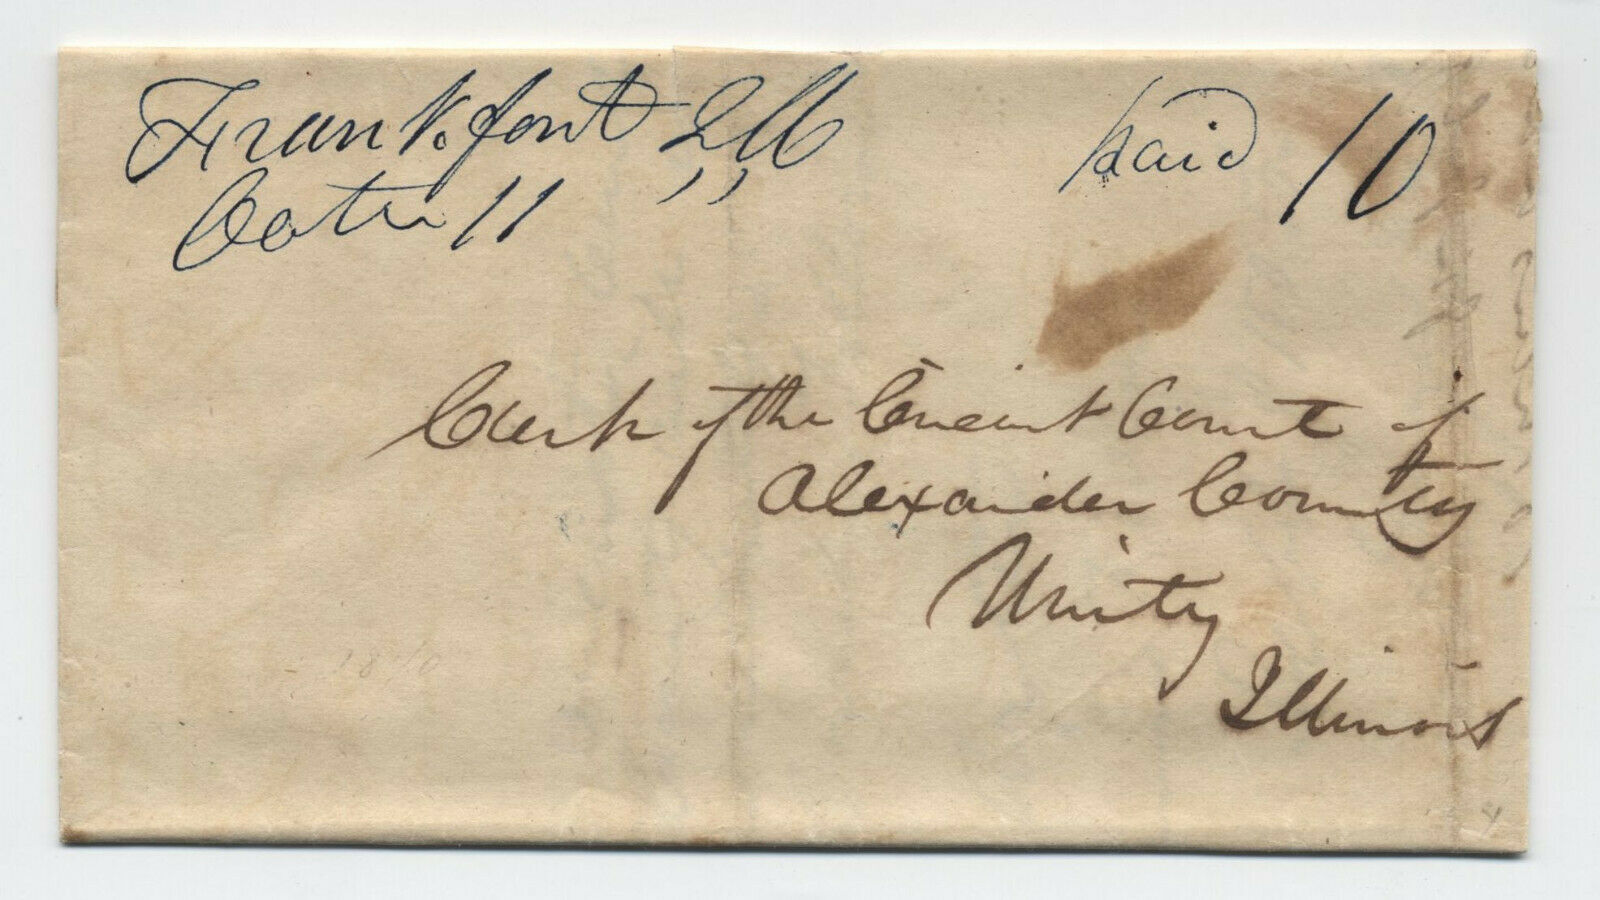 Frankfort Ills
Octr 11
Paid 10
Clerk of the Circuit Court of
Alexander County
Unity
Illinois
1840